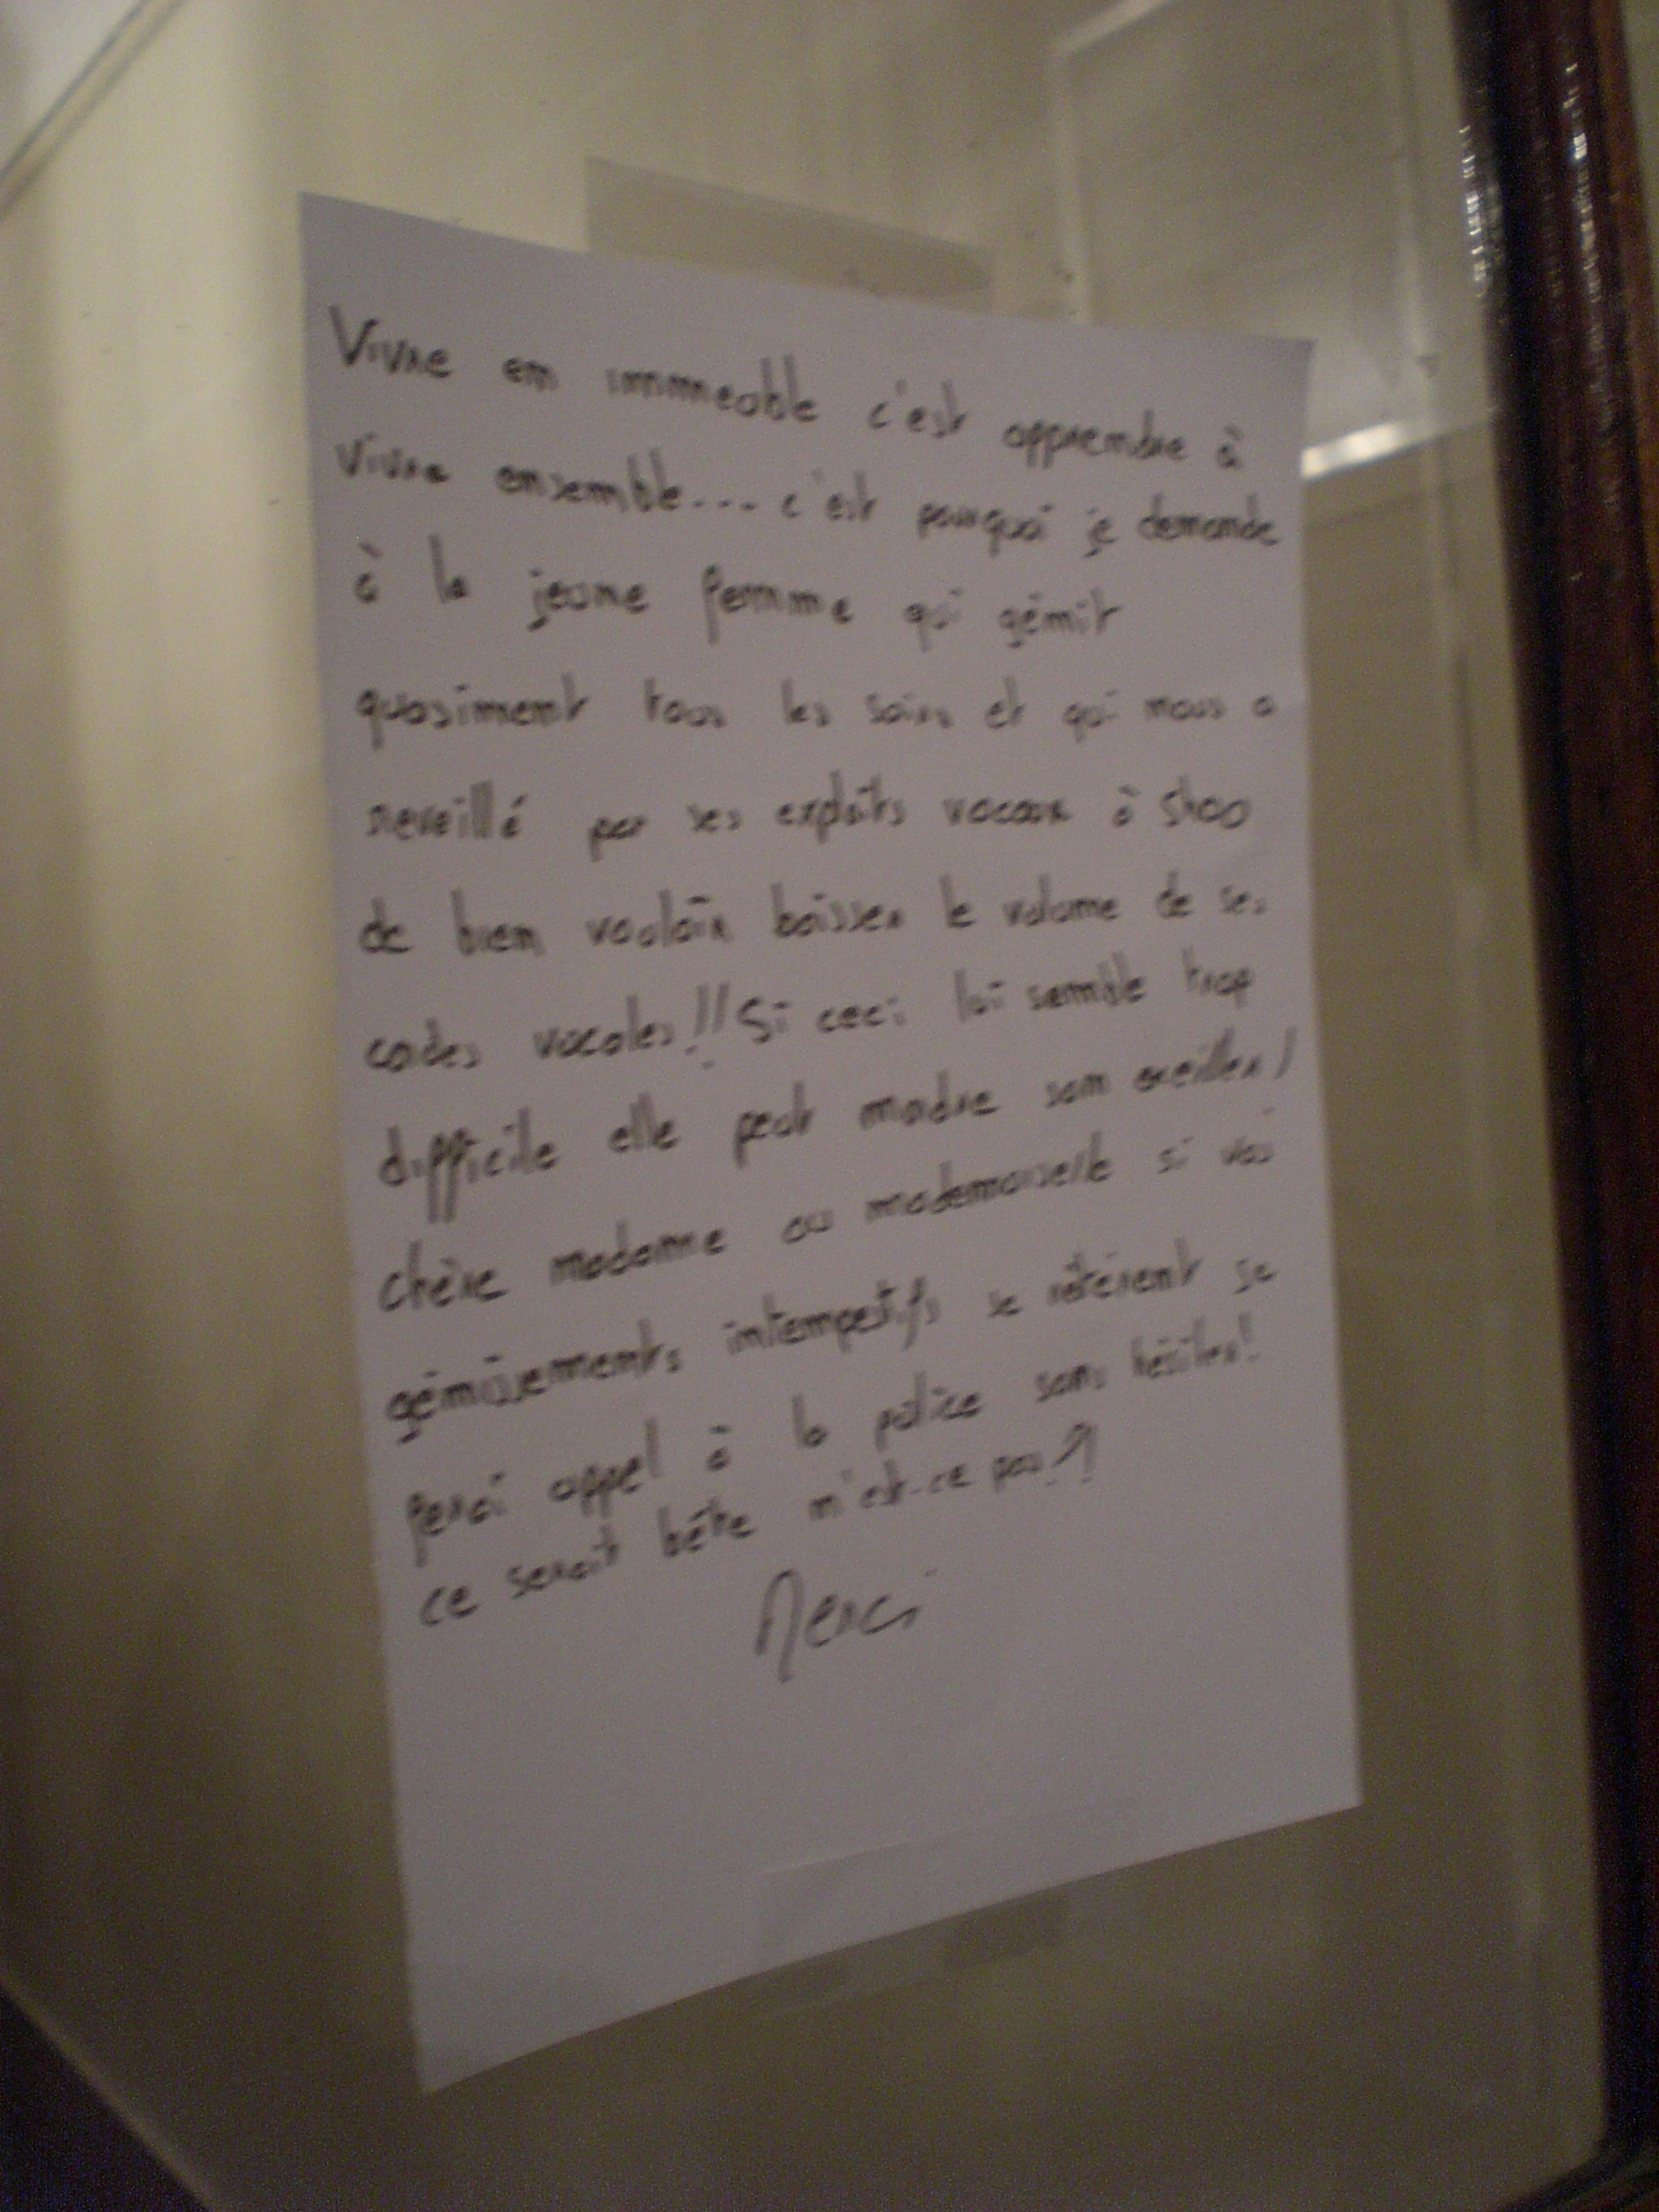 Vivre en immeuble c'est apprendre à
vivre ensemble... c'est pourquoi je demande
à la jeune femme qui gémit
quasiment tous les soirs et qui nous a
reveillé par ses exploits vocaux à 5h00
de bien vouloir baisser le volume de ses
cordes vocales!! Si ceci lui semble trop
difficile elle peut mordre son oreiller!
chère madame ou mademoiselle si vos
gémissements intempestifs se réitèrent je
ferai appel à la police sans hésiter!
ce serait bête n'est-ce pas??
Merci